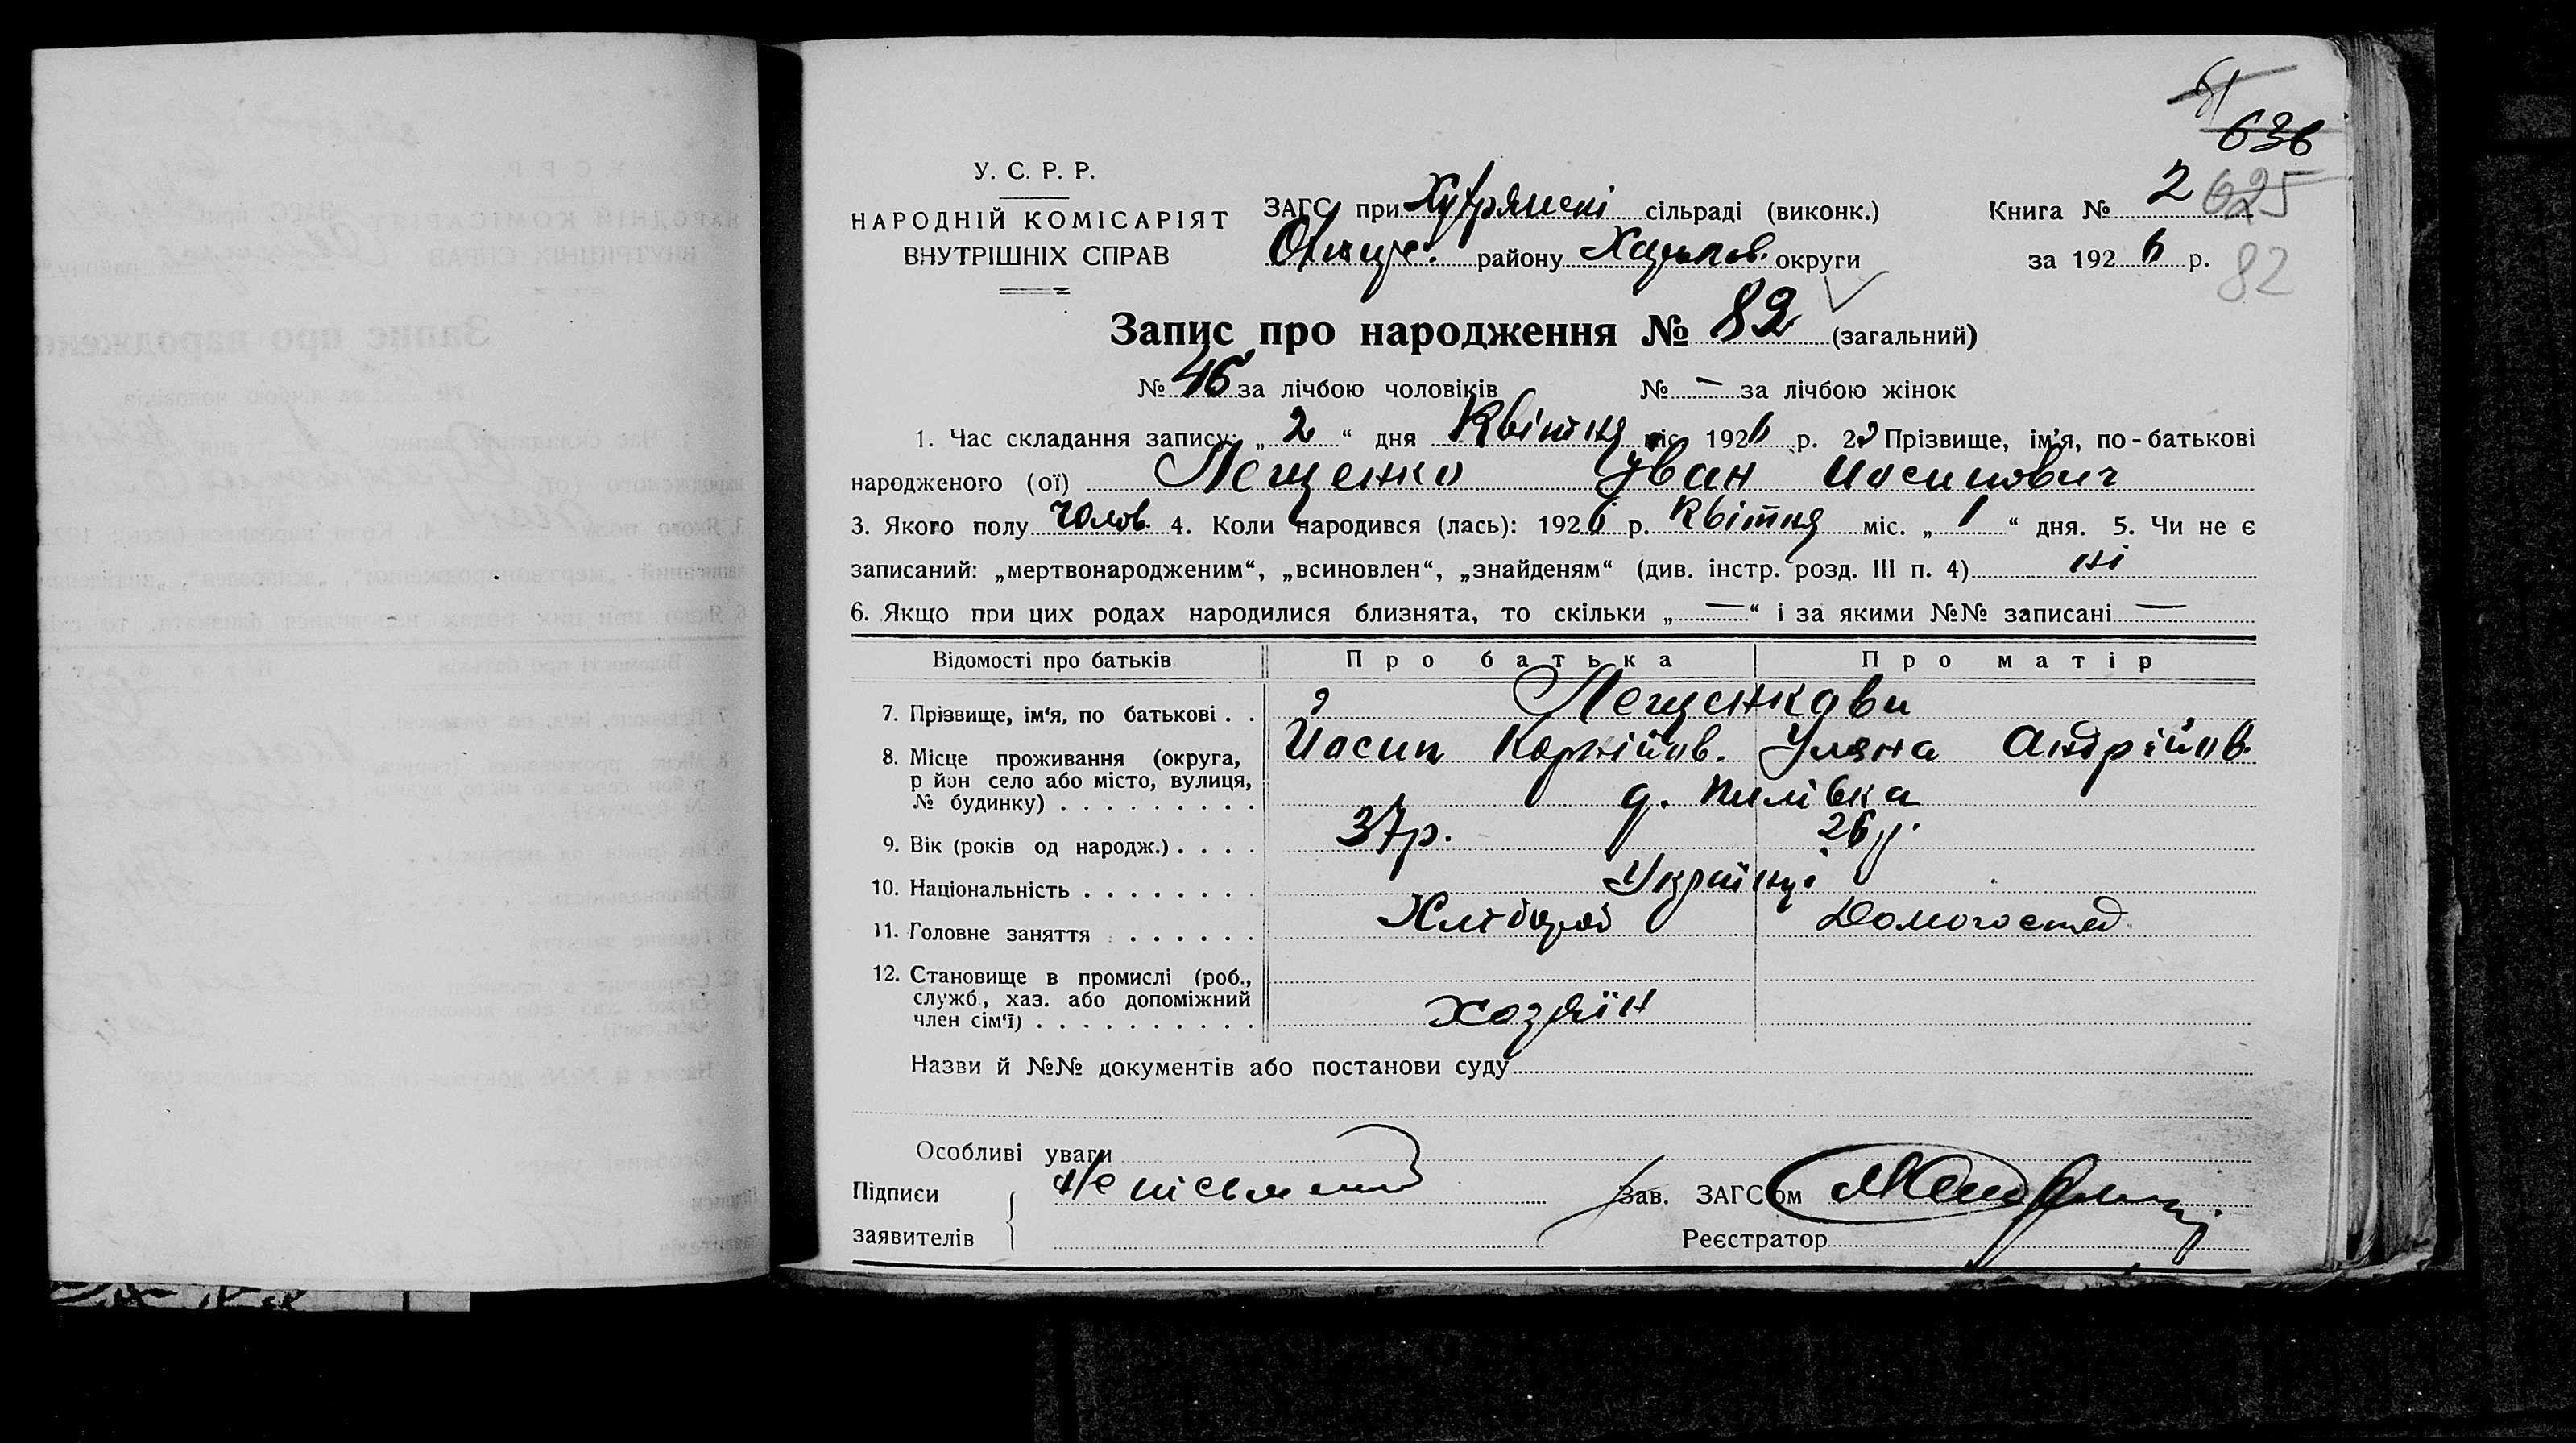 61
636
У. С. Р. Р.
НАРОДНІЙ КОМІСАРІЯТ
ВНУТРІШНІХ СПРАВ
ЗАГС при сільраді (виконк.)
району Харьков. округи
Книга № 2 625
за 1926 р. 82
Запис про народження № 82 (загальний)
№ 46 за лічбою чоловіків № — за лічбою жінок
1. Час складання запису: „ 2 “ дня Квітня міс. 1926 р. 2. Прізвище, ім’я, по-батькові
народженого (ої) Лещенко Іван Иосипович
3. Якого полу Чолов. 4. Коли народився (лась): 1926 р. Квітня міс. „ 1 “ дня. 5. Чи не є
записаний: „мертвонародженим“, „всиновлен“, „знайденям“ (див. інстр. розд. III п. 4) ні
6. Якщо при цих родах народилися близнята, то скільки „ — “ і за якими №№ записані —
Відомості про батьків Про батька Про матір
7. Прізвище, ім‘я, по батькові . . Лещенкови
Йосип Корнійов. Уляна Андрійов.
8. Місце проживання (округа,
р йон село або місто, вулиця,
№ будинку) . . . . . . . . .
9. Вік (років од народж.) . . . . 37р. 26 р.
10. Національність . . . . . . . Українці
11. Головне заняття . . . . . . Хлібороб Домогоспод.
12. Становище в промислі (роб.,
служб., хаз. або допоміжний
член сім‘ї) . . . . . . . . . . хозяїн
Назви й №№ документів або постанови суду
Особливі уваги
Підписи Не písьмений Зав. ЗАГСом
заявителів Реєстратор